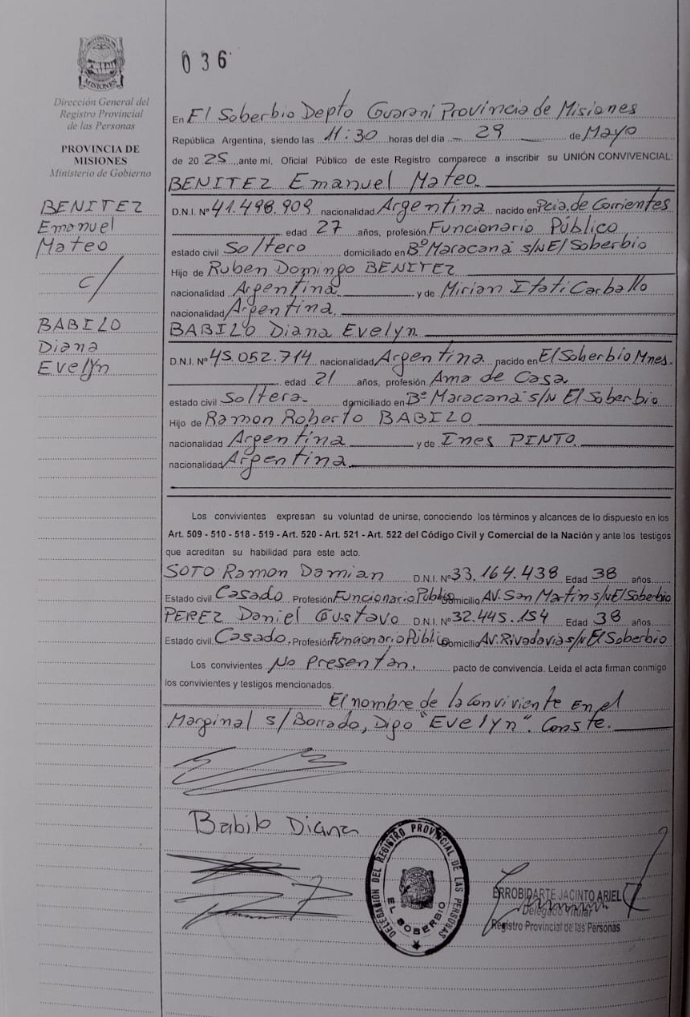 036
MISIONES
Dirección General del
Registro Provincial
de las Personas
PROVINCIA DE
MISIONES
Ministerio de Gobierno
BENITEZ
Emanuel
Mateo
c/
BABILO
Diana
Evelyn
En El Soberbio Depto Guaraní Provincia de Misiones
República Argentina, siendo las 11:30 horas del día 29 de Mayo
de 2025 ante mi, Oficial Público de este Registro comparece a inscribir su UNIÓN CONVIVENCIAL:
BENITEZ Emanuel Mateo
D.N.I. Nº 41.498.909 nacionalidad Argentina nacido en Pcia. de Corrientes
edad 27 años, profesión Funcionario Público
estado civil Soltero domiciliado en Bº Maracaná s/N El Soberbio
Hijo de Ruben Domingo BENITEZ
nacionalidad Argentina y de Mirian Itati Carballo
nacionalidad Argentina
BABILO Diana Evelyn
D.N.I. Nº 45.052.714 nacionalidad Argentina nacido en El Soberbio Mnes.
edad 21 años, profesión Ama de Casa
estado civil Soltera domiciliado en Bº Maracaná s/N El Soberbio
Hijo de Ramon Roberto BABILO
nacionalidad Argentina y de Ines PINTO
nacionalidad Argentina
Los convivientes expresan su voluntad de unirse, conociendo los términos y alcances de lo dispuesto en los
Art. 509 - 510 - 518 - 519 - Art. 520 - Art. 521 - Art. 522 del Código Civil y Comercial de la Nación y ante los testigos
que acreditan su habilidad para este acto.
SOTO Ramon Damian D.N.I. Nº 33.164.438 Edad 38 años
Estado civil Casado Profesión Funcionario Público Domicilio AV. San Martin s/N El Soberbio
PEREZ Daniel Gustavo D.N.I. Nº 32.445.154 Edad 38 años
Estado civil Casado. Profesión Funcionario Público Domicilio Av. Rivadavia s/N El Soberbio
Los convivientes No Presentan. pacto de convivencia. Leída el acta firman conmigo
los convivientes y testigos mencionados.
El nombre de la Conviviente En el
Marginal s/Borrado, Digo "Evelyn". Conste.
Babilo Diana
DELEGACION DEL REGISTRO PROVINCIAL DE LAS PERSONAS
EL SOBERBIO
ERROBIDARTE JACINTO ARIEL
Delegado Titular
Registro Provincial de las Personas